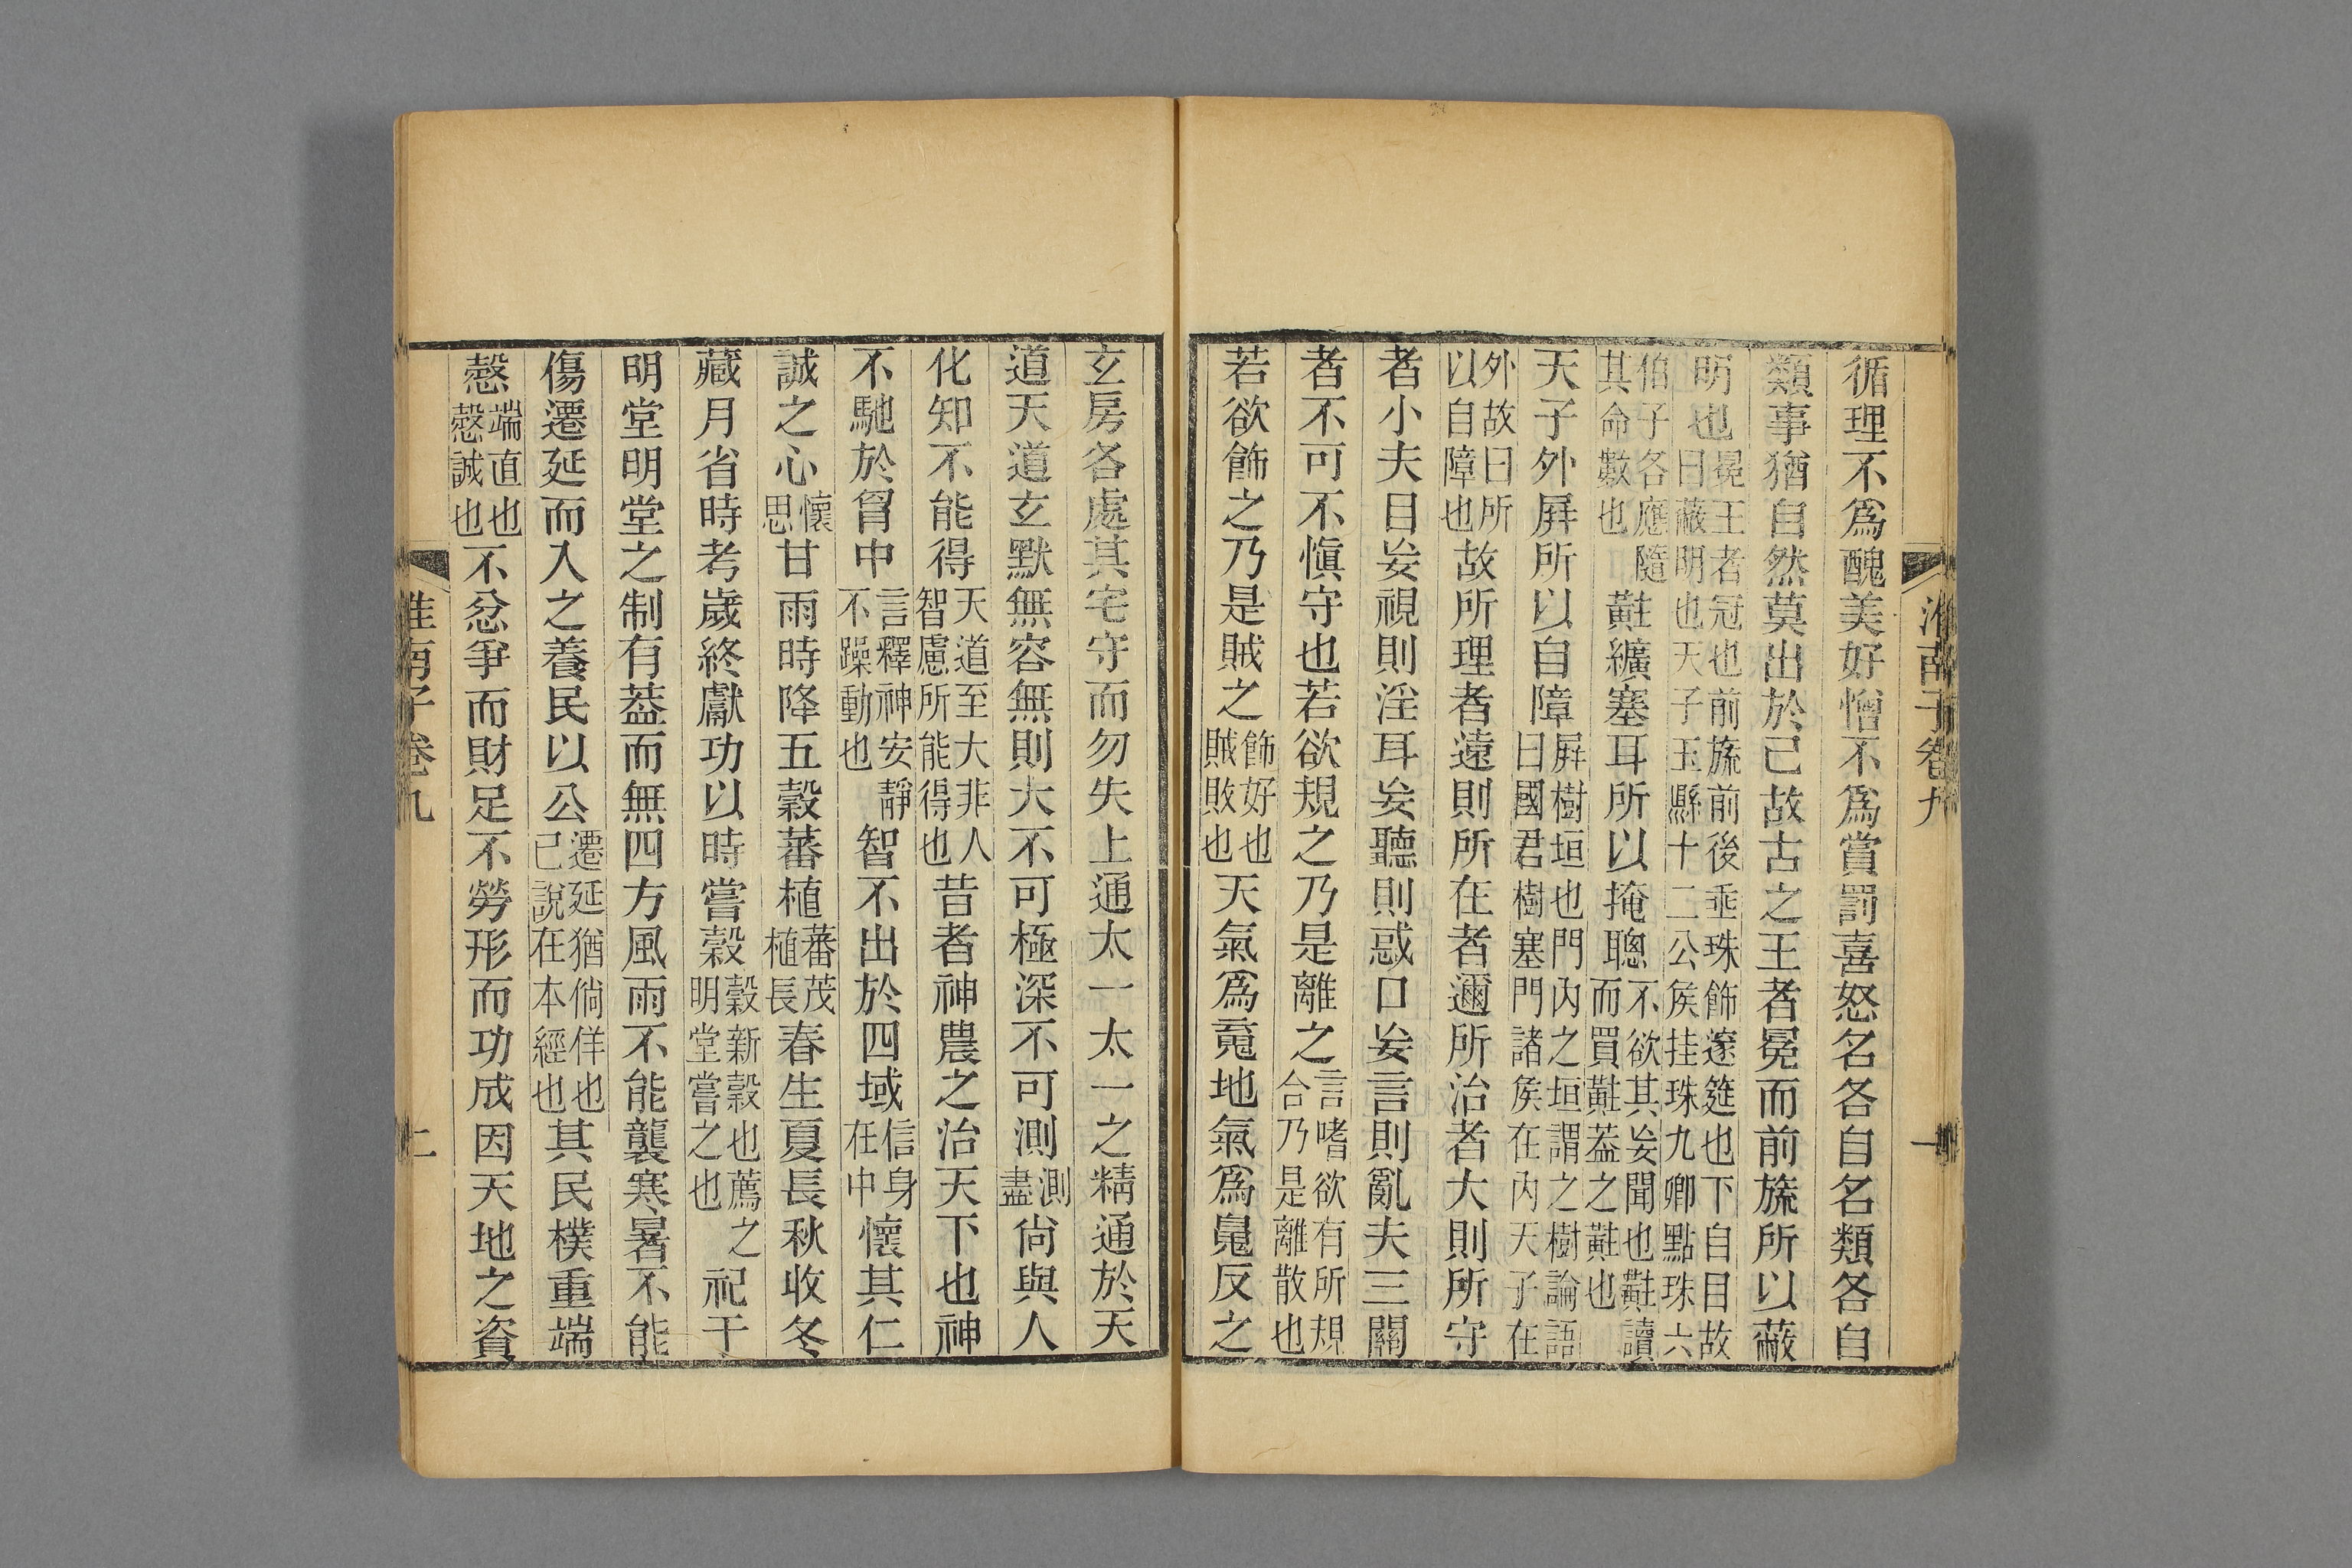 淮南子卷九 一
循理不爲醜美好憎不爲賞罰喜怒名各自名類各自
類事猶自然莫出於己故古之王者冕而前旒所以蔽
明也冕王者冠也前旒前後垂珠飾邃筵也下自目故曰蔽明也天子玉縣十二公矦挂珠九卿點珠六
伯子各應隨其命數也黈纊塞耳所以掩聰不欲其妄聞也黈讀而買黈葢之黈也
天子外屏所以自障屏樹垣也門內之垣謂之樹論語曰國君樹塞門諸矦在內天子在
外故曰所以自障也故所理者遠則所在者邇所治者大則所守
者小夫目妄視則淫耳妄聽則惑口妄言則亂夫三關
者不可不愼守也若欲規之乃是離之言嗜欲有所規合乃是離散也
若欲飾之乃是賊之飾好也賊敗也天氣爲䰟地氣爲魄反之
玄房各處其宅守而勿失上通太一太一之精通於天
道天道玄默無容無則大不可極深不可測測盡尙與人
化知不能得天道至大非人智慮所能得也昔者神農之治天下也神
不馳於胷中言釋神安靜不躁動也智不出於四域信身在中懷其仁
誠之心懷思甘雨時降五穀蕃植蕃茂植長春生夏長秋收冬
藏月省時考歲終獻功以時嘗穀穀新穀也薦之明堂嘗之也祀于
明堂明堂之制有葢而無四方風雨不能襲寒暑不能
傷遷延而入之養民以公遷延猶倘佯也已說在本經也其民樸重端
愨端直也愨誠也不忿爭而財足不勞形而功成因天地之資
淮南子卷九 二